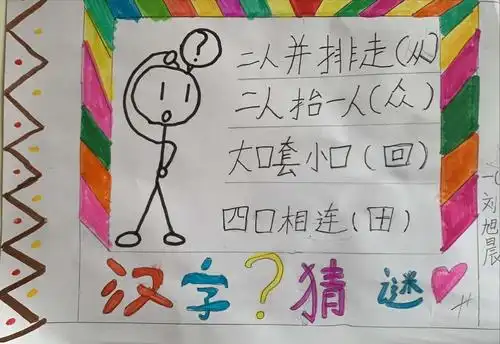 ?
二人并排走(从)
二人抬一人(众)
大口套小口(回)
四口相连(田)
汉字?猜谜
刘旭晨